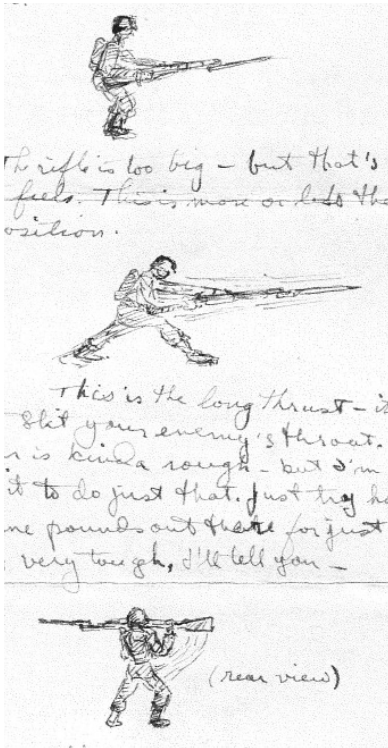 The rifle is too big – but that's
feels. This is more or less the
osition.
This is the long thrust – it
slit your enemy's throat.
r is kinda rough – but I'm
it to do just that. Just try ho
ne pounds out there for just
very tough, I'll tell you –
(rear view)